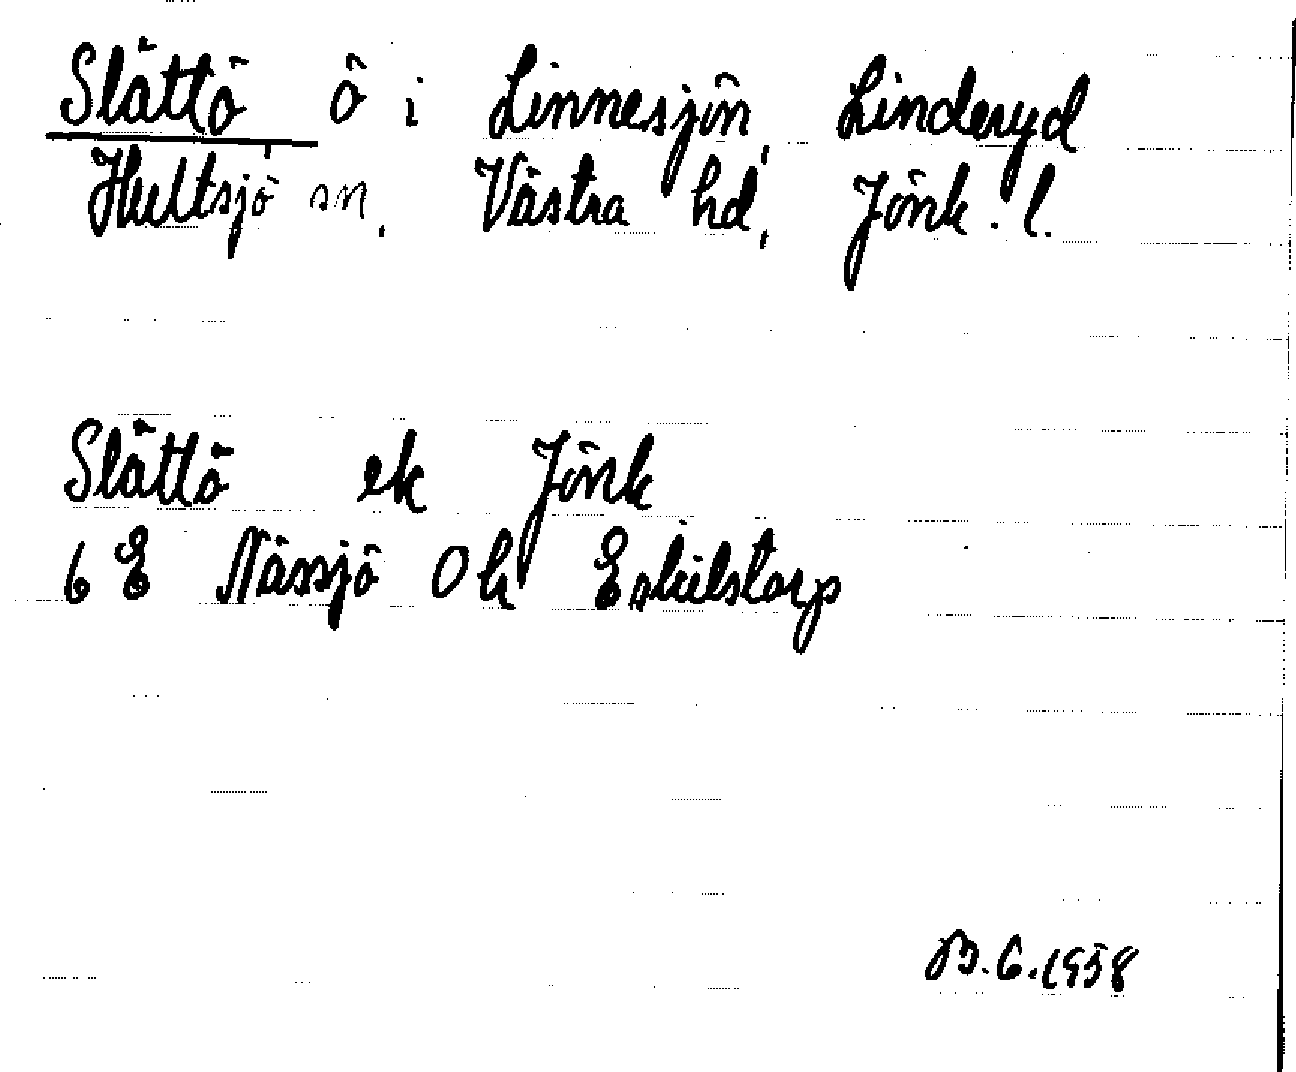 Slättö ö i Linnesjön, Linderyd
Hultsjö sn. Västra hd, Jönk. l.
Slättö ek Jönk
6 E Nässjö 0 h Eskilstorp
B.G.1958